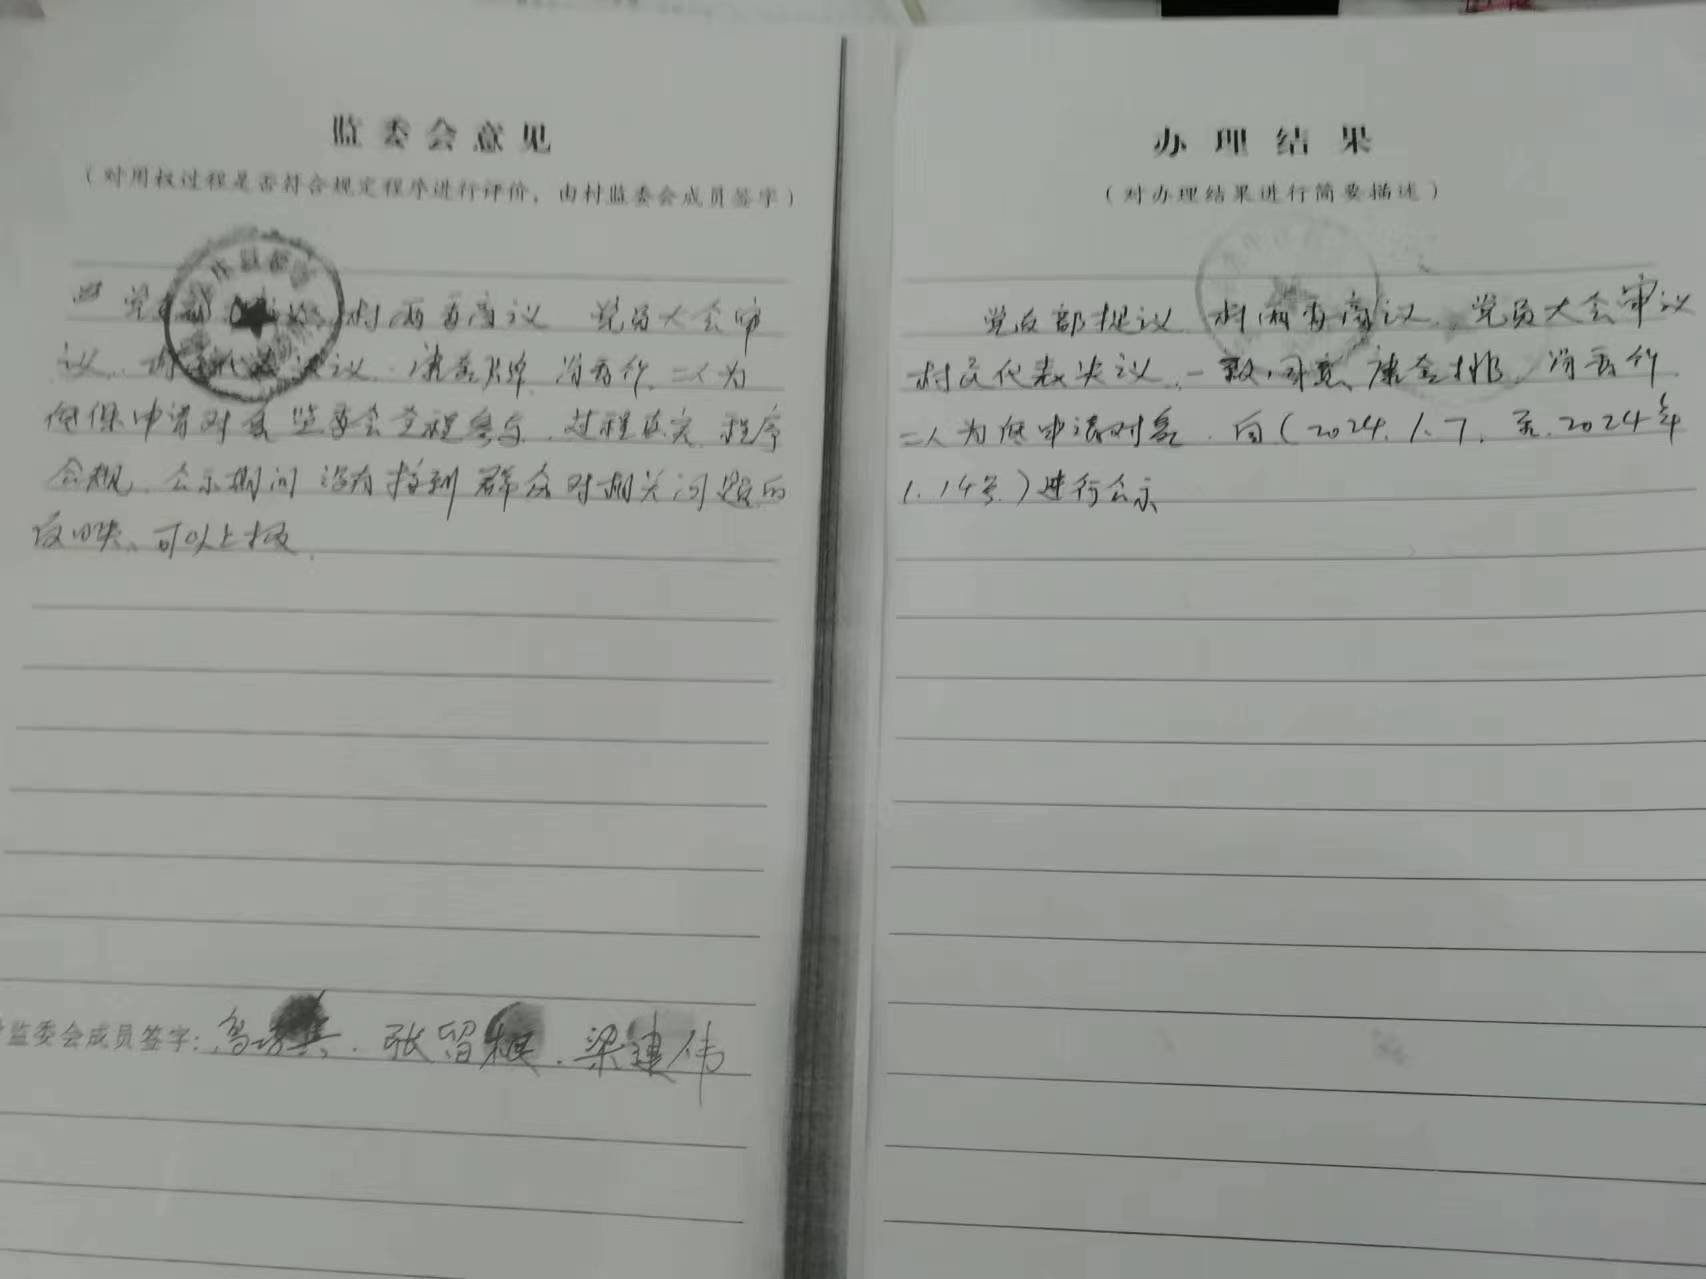 监委会意见
（对用权过程是否符合规定程序进行评价，由村监委会成员签字）
党 村两委商议 党员大会审
议 决议 二人为
低保申请对象 监委会全程参与 过程真实 程序
合规 公示期间 没有接到群众对相关问题的
反映、可以上报
监委会成员签字： 张留 梁建伟
办理结果
（对办理结果进行简要描述）
党支部提议 村两委商议 党员大会审议
村民代表决议 一致同意
二人为低申请对象 自（2024.1.7. 至.2024年
1.14号）进行公示